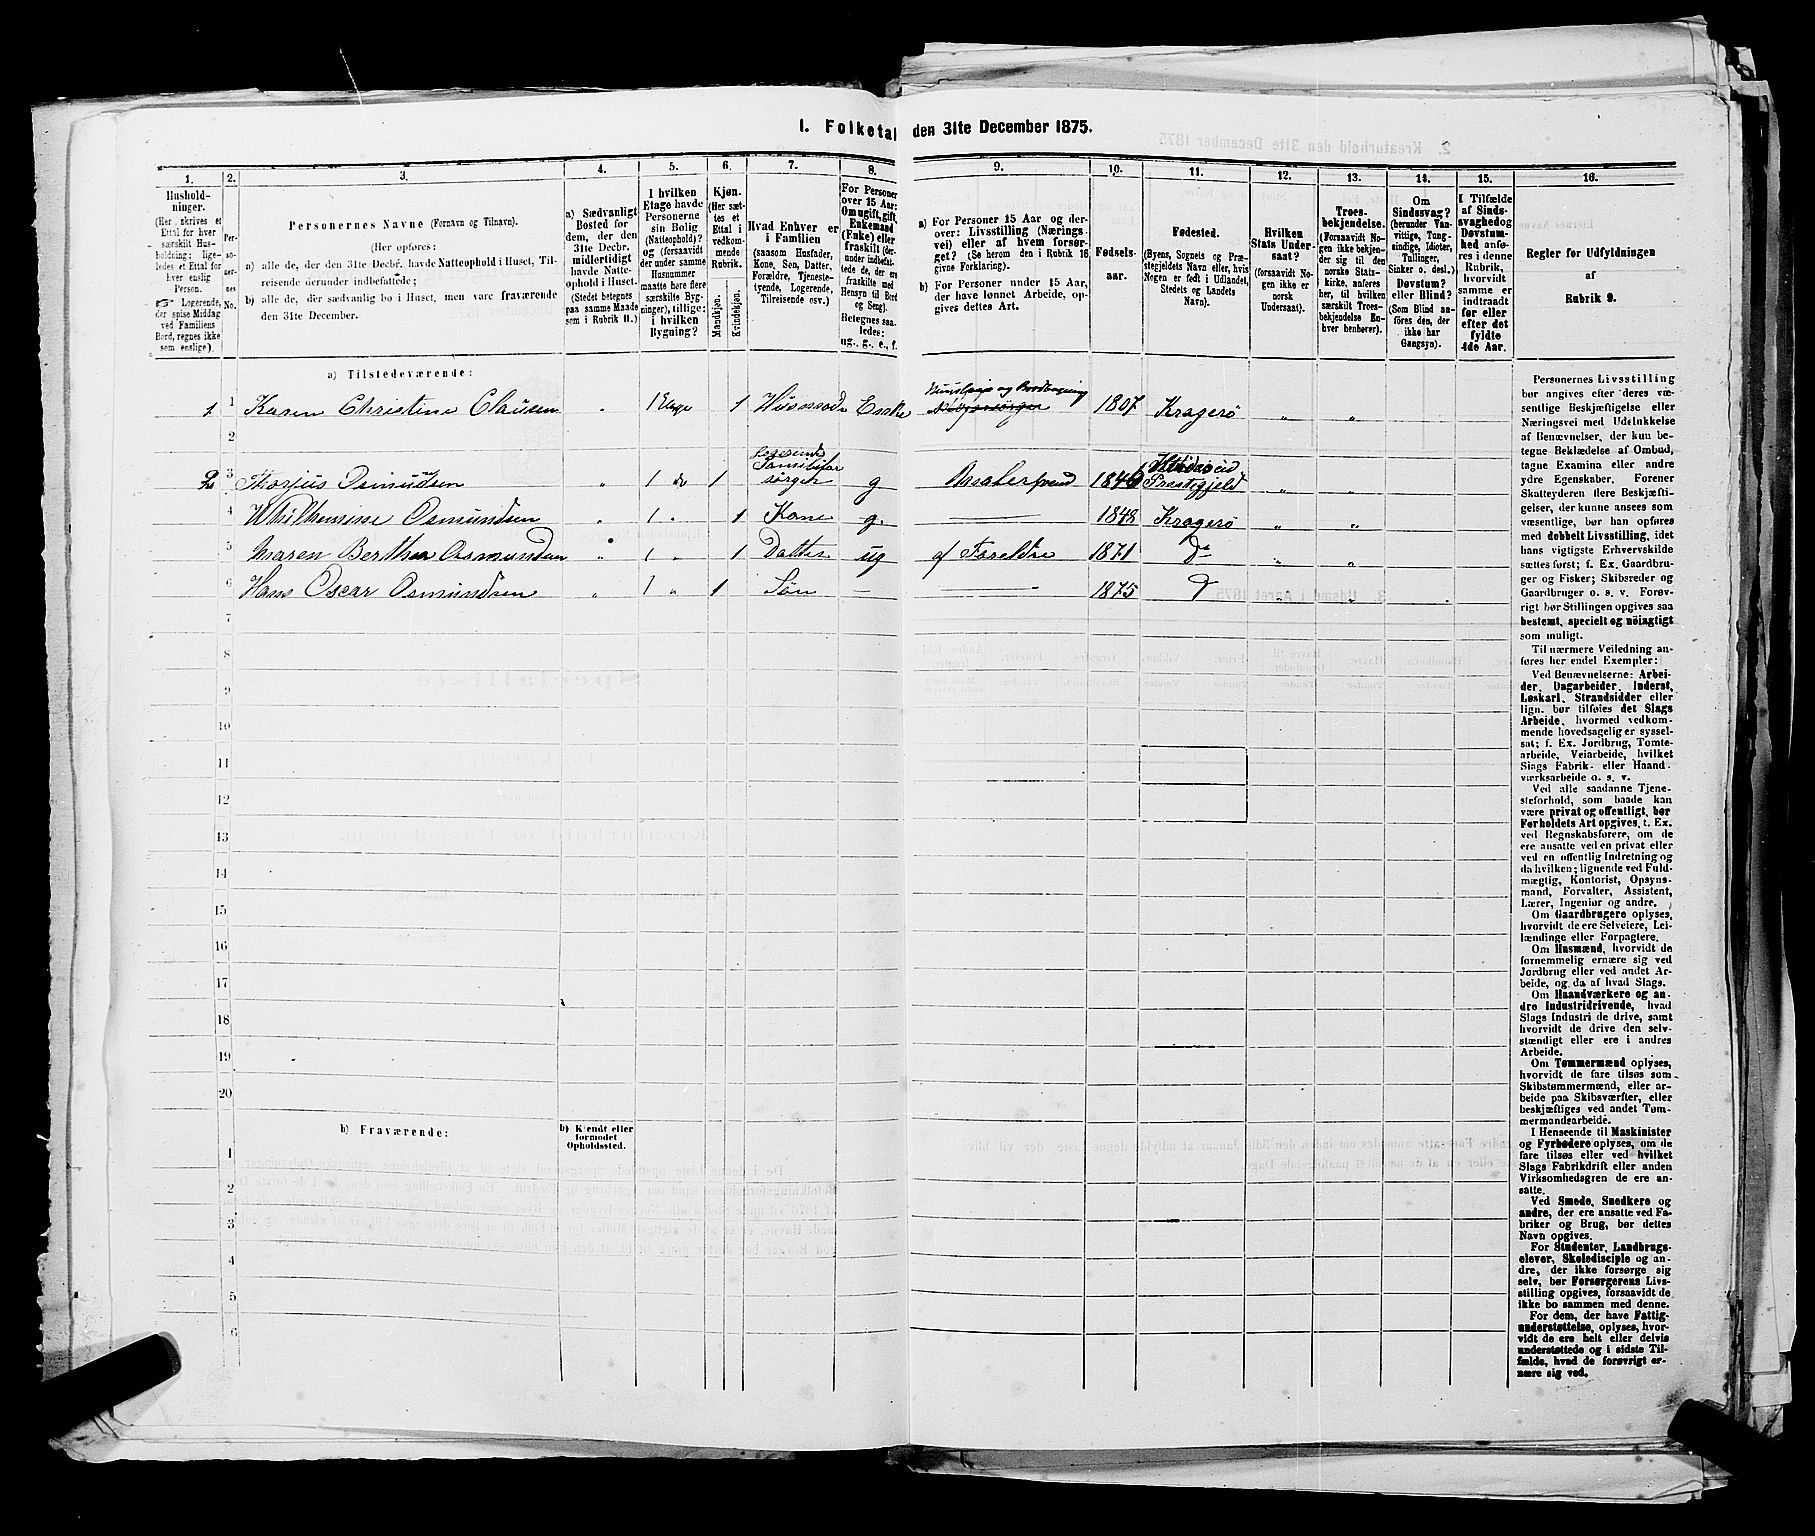 I. Folketal den 31te December 1875.
1. 2. 3. 4. 5. 6. 7. 8. 9. 10. 11. 12. 13. 14. 15. 16.
Hushold-
ninger.
(Her skrives et
Ettal for hver
særskilt Hus-
holdning; lige-
ledes et Ettal for
enslig
Person.
☞ Logerende,
der spise Middag
ved Familiens
Bord, regnes ikke
som enslige).
Per-
so-
ner-
nes
No.
Personernes Navne (Fornavn og Tilnavn).
(Her opføres:
a) alle de, der den 31te Decbr. havde Natteophold i Huset, Til-
reisende derunder indbefattede;
b) alle de, der sædvanlig bo i Huset, men vare fraværende
den 31te December.
a) Sædvanligt
Bosted for
dem, der den
31te Decbr.
midlertidigt
havde Natte-
ophold i Huset.
(Stedet betegnes
paa samme Maade
som i Rubrik 11.)
I hvilken
Etage havde
Personerne
sin Bolig
(Natteophold)?
og (forsaavidt
der under samme
Husnummer
maatte høre flere
særskilte Byg-
ninger), tillige:
i hvilken
Bygning?
Kjøn.
(Her sæt-
tes et
Ettal i
vedkom-
mende
Rubrik.
Mandkjøn.
Kvindekjøn.
Hvad Enhver er
i Familien
(saasom Husfader,
Kone, Søn, Datter,
Forældre, Tjeneste-
tyende, Logerende,
Tilreisende osv.)
For Personer
over 15 Aar:
Om ugift, gift,
Enkemand
(Enke) eller
fraskilt (der-
under indbefat-
tede de, der ere
fraskilte med
Hensyn til Bord
og Seng).
Betegnes saa-
ledes:
ug., g., e., f.
a) For Personer 15 Aar og der-
over: Livsstilling (Nærings-
vei) eller af hvem forsør-
get? (Se herom den i Rubrik 16
givne Forklaring).
b) For Personer under 15 Aar,
der have lønnet Arbeide, op-
gives dettes Art.
Fødsels-
aar.
Fødested.
(Byens, Sognets og Præ-
stegjeldets Navn eller, hvis
Nogen er født i Udlandet,
Stedets og Landets
Navn).
Hvilken
Stats Under-
saat?
(forsaavidt No-
gen ikke er
norsk
Undersaat).
Troes-
bekjendelse.
(Forsaavidt No-
gen ikke bekjen-
der sig til den
norske Stats-
kirke, anføres
her, til hvilken
særskilt Troes-
bekjendelse En-
hver henhører).
Om
Sindssvag?
(herunder Van-
vittige, Tung-
sindige, Idioter,
Tullinger,
Sinker o. desl.)
Døvstum?
eller Blind?
(Som Blind an-
føres den, der
ikke har
Gangsyn).
I Tilfælde
af Sinds-
svaghed og
Døvstum-
hed anfø-
res i denne
Rubrik,
hvorvidt
samme er
indtraadt
før eller
efter det
fyldte
4de Aar.
Regler for Udfyldningen
af
Rubrik 9.
a) Tilstedeværende:
1 1 Karen Christine Clausen „ 1 Etage 1 Enke 1807 Kragerø „ „
2
2 3 Osmundsen „ 1 do 1 Logerende Familiefor sørger g 1846 Prestegjeld „ „
4 Osmundsen „ 1 „ 1 Kone g. — 1848 Kragerø „ „
5 Maren Berthea Osmundsen „ 1 „ 1 Datter ug af Forældre 1871 do „ „
6 Hans Oscar Osmundsen „ 1 „ 1 Søn — — 1875 d „ „
7
8
9
10
11
12
13
14
15
16
17
18
19
20
b) Fraværende:
b) Kjendt eller
formodet
Opholdssted.
1
2
3
4
5
6
Personernes Livsstilling
bør angives efter deres væ-
sentlige Beskjæftigelse eller
Næringsvei med Udelukkelse
af Benævnelser, der kun be-
tegne Beklædelse af Ombud,
tagne Examina eller andre
ydre Egenskaber. Forener
Skatteyderen flere Beskjæfti-
gelser, der kunne ansees som
væsentlige, bør han opføres
med dobbelt Livsstilling, idet
hans vigtigste Erhvervskilde
sættes først; f. Ex. Gaardbru-
ger og Fisker; Skibsreder og
Gaardbruger o. s. v. Forøv-
rigt bør Stillingen opgives saa
bestemt, specielt og nøiagtigt
som muligt.
Til nærmere Veiledning an-
føres her endel Exempler:
Ved Benævnelserne: Arbei-
der, Dagarbeider, Inderst,
Løskarl, Strandsidder eller
lign. bør tilføies det Slags
Arbeide, hvormed vedkom-
mende hovedsagelig er syssel-
sat; f. Ex. Jordbrug, Tomte-
arbeide, Veiarbeide, hvilket
Slags Fabrik- eller Haand-
værksarbeide o. s. v.
Ved alle saadanne Tjene-
steforhold, som baade kan
være privat og offentligt, bør
Forholdets Art opgives, t. Ex.
ved Regnskabsførere, om de
ere ansatte ved en privat eller
ved en offentlig Indretning og
da hvilken; lignende ved Fuld-
mægtig, Kontorist, Opsyns-
mand, Forvalter, Assistent,
Lærer, Ingeniør og andre.
Om Gaardbrugere oplyses,
hvorvidt de ere Selveiere, Lei-
lændinge eller Forpagtere.
Om Husmænd, hvorvidt de
fornemmelig ernære sig ved
Jordbrug eller ved andet Ar-
beide, og da af hvad Slags.
Om Haandværkere og an-
dre Industridrivende, hvad
Slags Industri de drive, samt
hvorvidt de drive den selv-
stændigt eller ere i andres
Arbeide.
Om Tømmermænd oplyses,
hvorvidt de fare tilsøs som
Skibstømmermænd, eller ar-
beide paa Skibsværfter, eller
beskjæftiges ved andet Tøm-
mermandsarbeide.
I Henseende til Maskinister
og Fyrbødere oplyses, om de
fare tilsøs eller ved hvilket
Slags Fabrikdrift eller anden
Virksomhedsgren de ere an-
satte.
Ved Smede, Snedkere og
andre, der ere ansatte ved Fa-
briker og Brug, bør dettes
Navn opgives.
For Studenter, Landbrugs-
elever, Skoledisciple og an-
dre, der ikke forsørge sig
selv, bør Forsørgerens Livs-
stilling opgives, forsaavidt de
ikke bo sammen med denne.
For dem, der have Fattig-
understøttelse, oplyses, hvor-
vidt de ere helt eller delvis
understøttede og i sidste Til-
fælde, hvad de forøvrigt er-
nære sig ved.